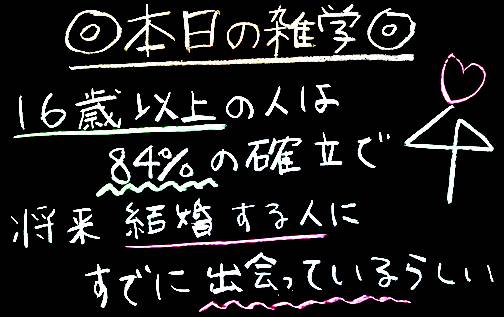 ◎本日の雑学◎
16歳以上の人は
84%の確立で
将来結婚する人に
すでに出会っているらしい